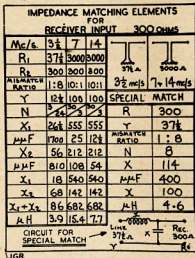 IMPEDANCE MATCHING ELEMENTS
FOR
RECEIVER INPUT 300 OHMS
Mc/s. 3½ 7 14
R₁ 37½ 3000 3000
R₂ 300 300 800
MISMATCH RATIO 1:8 10:1 10:1
Y 12½ 100 100
N 24 3 30
X₁ 26½ 555 555
µµF 1700 25 12½
X₂ 56 212 212
µµF 810 108 54
18 540 540
X₂ 68 142 142
X₁+X₂ 86 682 682
µH 3.9 15.4 7.7
37½Ω 3000Ω
3½ mc/s 7+14 mc/s
SPECIAL MATCH
R 300
Y 37½
MISMATCH RATIO 1:8
N 8
X 114
µµF 400
X 100
µH 4·6
CIRCUIT FOR
SPECIAL MATCH
LINE
37½Ω
Y
X
REC.
300Ω
R
JGR